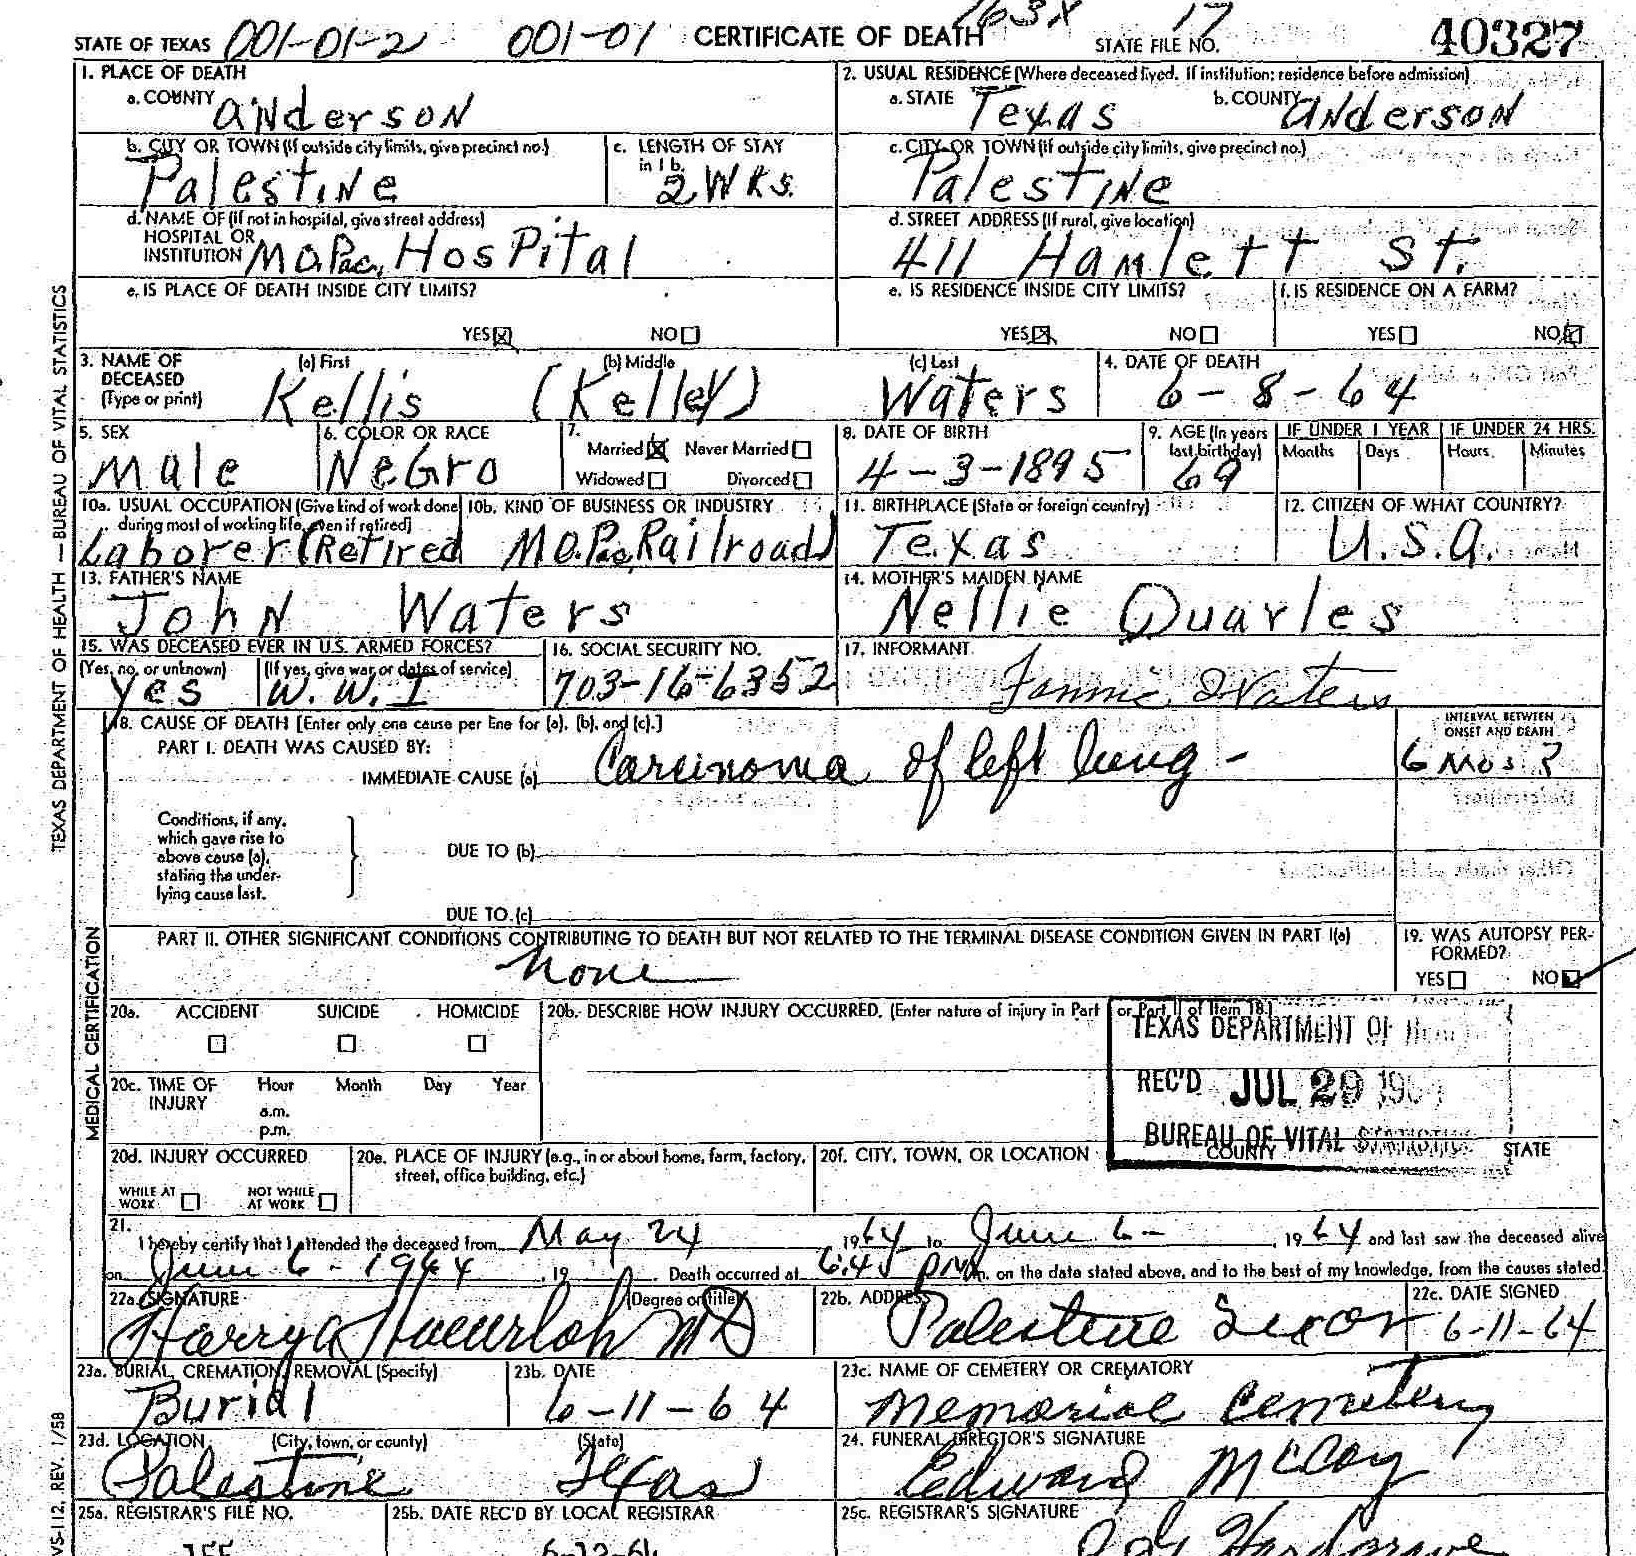 STATE OF TEXAS 001-01-2 001-01 CERTIFICATE OF DEATH 163X STATE FILE NO. 17 40327
1. PLACE OF DEATH
a. COUNTY Anderson
2. USUAL RESIDENCE (Where deceased lived. If institution: residence before admission)
a. STATE Texas b. COUNTY Anderson
b. CITY OR TOWN (If outside city limits, give precinct no.) Palestine
c. LENGTH OF STAY in 1 b. 2 Wks.
c. CITY OR TOWN (If outside city limits, give precinct no.) Palestine
d. NAME OF (If not in hospital, give street address) HOSPITAL OR INSTITUTION Mo. Pac. Hospital
d. STREET ADDRESS (If rural, give location) 411 Hamlett St.
e. IS PLACE OF DEATH INSIDE CITY LIMITS?
YES NO
e. IS RESIDENCE INSIDE CITY LIMITS?
YES NO
f. IS RESIDENCE ON A FARM?
YES NO
3. NAME OF DECEASED (Type or print)
(a) First Kellis (b) Middle (Kelley) (c) Last Waters
4. DATE OF DEATH 6-8-64
5. SEX Male
6. COLOR OR RACE Negro
7. Married Never Married
Widowed Divorced
8. DATE OF BIRTH 4-3-1895
9. AGE (In years last birthday) 69
IF UNDER 1 YEAR Months Days
IF UNDER 24 HRS. Hours Minutes
10a. USUAL OCCUPATION (Give kind of work done during most of working life, even if retired) Laborer (Retired
10b. KIND OF BUSINESS OR INDUSTRY Mo. Pac. Railroad)
11. BIRTHPLACE (State or foreign country) Texas
12. CITIZEN OF WHAT COUNTRY? U.S.A.
13. FATHER'S NAME John Waters
14. MOTHER'S MAIDEN NAME Nellie Quarles
15. WAS DECEASED EVER IN U.S. ARMED FORCES?
(Yes, no, or unknown) Yes (If yes, give war or dates of service) W.W. I
16. SOCIAL SECURITY NO. 703-16-6352
17. INFORMANT Fannie Waters
18. CAUSE OF DEATH [Enter only one cause per line for (a), (b), and (c).]
PART I. DEATH WAS CAUSED BY:
IMMEDIATE CAUSE (a) Carcinoma of left lung -
INTERVAL BETWEEN ONSET AND DEATH 6 Mos ?
Conditions, if any, which gave rise to above cause (a), stating the underlying cause last.
DUE TO (b)
DUE TO (c)
PART II. OTHER SIGNIFICANT CONDITIONS CONTRIBUTING TO DEATH BUT NOT RELATED TO THE TERMINAL DISEASE CONDITION GIVEN IN PART I(a)
None
19. WAS AUTOPSY PERFORMED?
YES NO
20a. ACCIDENT SUICIDE HOMICIDE
20b. DESCRIBE HOW INJURY OCCURRED. (Enter nature of injury in Part I or Part II of Item 18.)
TEXAS DEPARTMENT OF HEALTH
REC'D JUL 29
BUREAU OF VITAL STATISTICS
20c. TIME OF INJURY Hour Month Day Year
a.m.
p.m.
20d. INJURY OCCURRED
WHILE AT WORK NOT WHILE AT WORK
20e. PLACE OF INJURY (e.g., in or about home, farm, factory, street, office building, etc.)
20f. CITY, TOWN, OR LOCATION COUNTY STATE
21. I hereby certify that I attended the deceased from May 24 1964 to June 6- , 1964 and last saw the deceased alive
on June 6 - 1964 , 19 . Death occurred at 6:45 PM m. on the date stated above, and to the best of my knowledge, from the causes stated.
22a. SIGNATURE (Degree or title) Harry MD
22b. ADDRESS Palestine Texas
22c. DATE SIGNED 6-11-64
23a. BURIAL, CREMATION, REMOVAL (Specify) Burial
23b. DATE 6-11-64
23c. NAME OF CEMETERY OR CREMATORY Memorial Cemetery
23d. LOCATION (City, town, or county) (State) Palestine Texas
24. FUNERAL DIRECTOR'S SIGNATURE Edward McCoy
25a. REGISTRAR'S FILE NO.
25b. DATE REC'D BY LOCAL REGISTRAR
25c. REGISTRAR'S SIGNATURE
TEXAS DEPARTMENT OF HEALTH — BUREAU OF VITAL STATISTICS
MEDICAL CERTIFICATION
VS-112, REV. 1/58